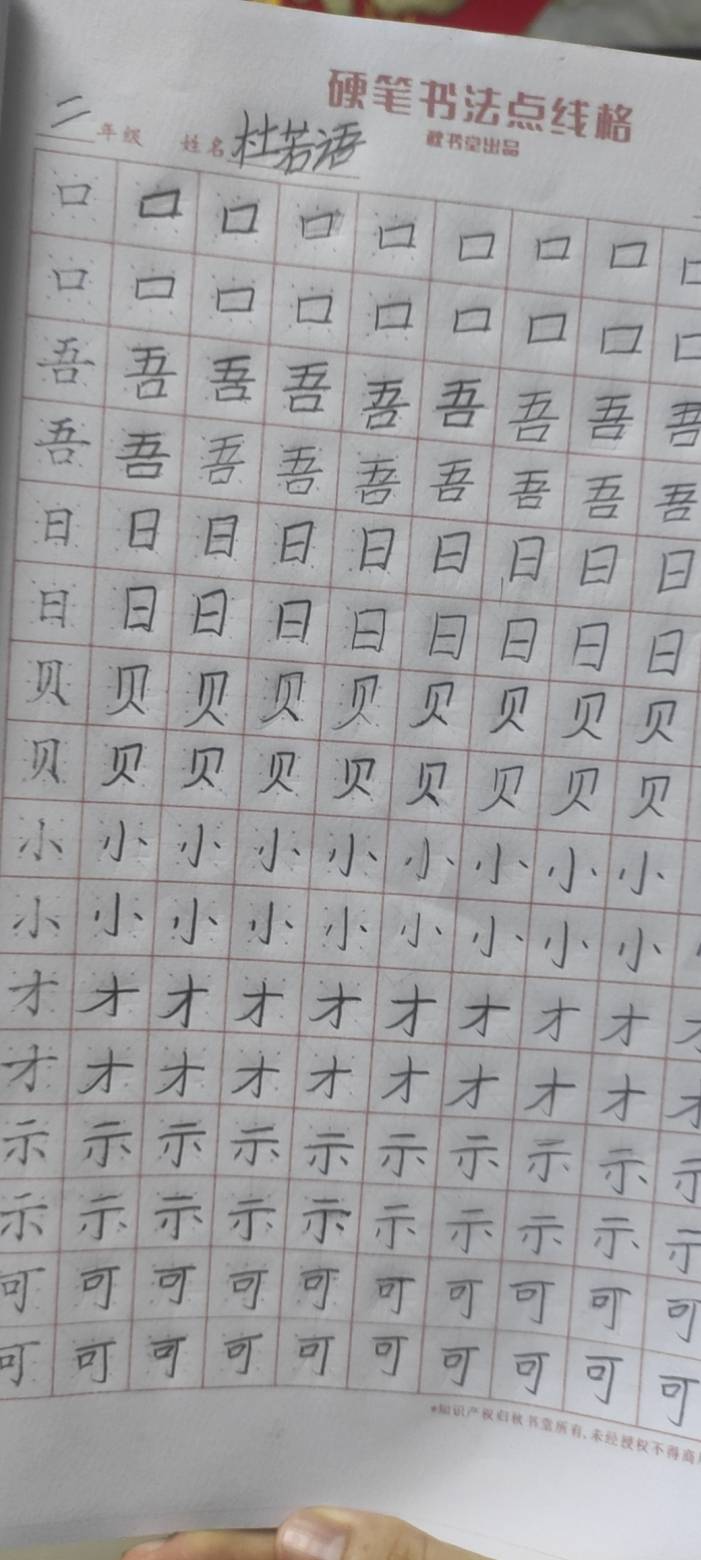 硬笔书法点线格
二年级 姓名 杜若语 秋书堂出品
口口口口口口口口口
口口口口口口口口口
吾吾吾吾吾吾吾吾吾
吾吾吾吾吾吾吾吾吾
日日日日日日日日日
日日日日日日日日日
贝贝贝贝贝贝贝贝贝
贝贝贝贝贝贝贝贝贝
小小小小小小小小小
小小小小小小小小小
才才才才才才才才才才
才才才才才才才才才才
示示示示示示示示示示
示示示示示示示示示示
可可可可可可可可可可
可可可可可可可可可可
*知识产权归秋书堂所有,未经授权不得商